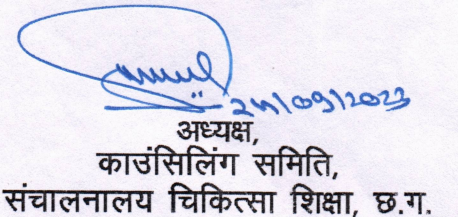 /09/2023
अध्यक्ष,
काउंसिलिंग समिति,
संचालनालय चिकित्सा शिक्षा, छ.ग.